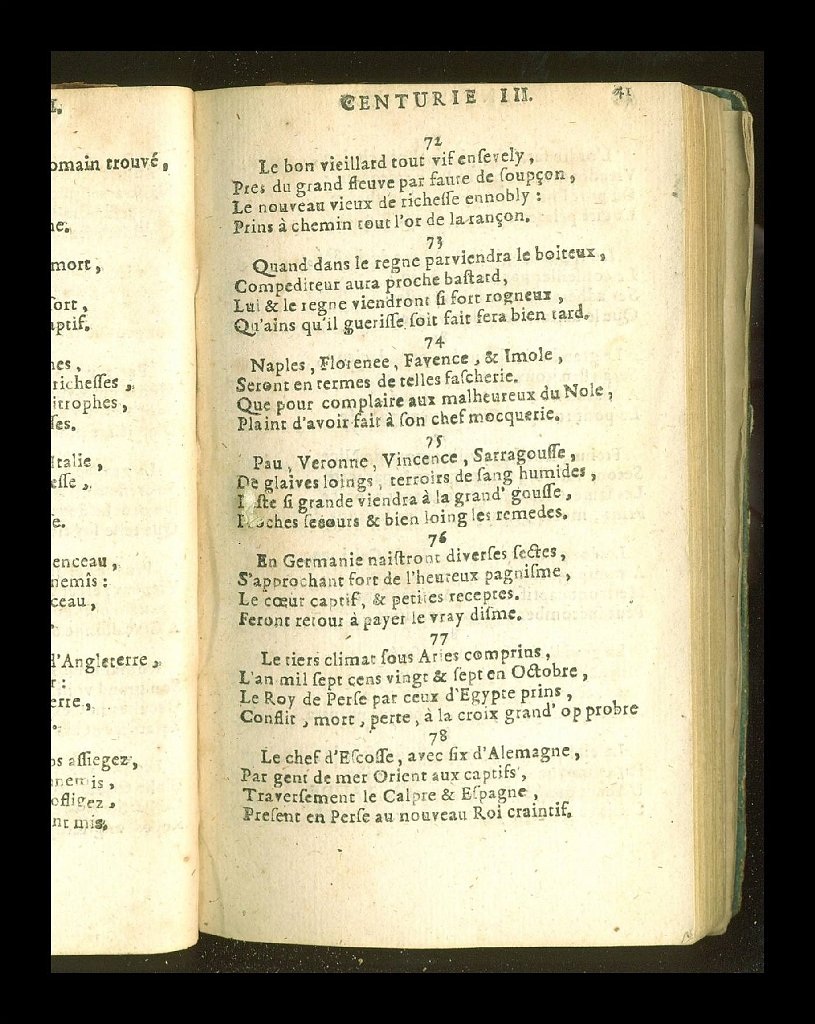 I.
omain trouvé,
ne.
mort,
ſort,
aptif.
nes,
richeſſes,
itrophes,
ſes.
Italie,
eſſe,
ſe.
enceau,
nemîs :
ceau,
d'Angleterre,
r :
erre,
os aſſiegez,
nemis,
ofligez,
nt mis.
CENTURIE III. 41
72
Le bon vieillard tout vif enſevely,
Pres du grand fleuve par fauſe de ſoupçon,
Le nouveau vieux de richeſſe ennobly :
Prins à chemin tout l'or de la rançon.
73
Quand dans le regne parviendra le boiteux,
Compediteur aura proche baſtard,
Lui & le regne viendront ſi fort rogneux,
Qu'ains qu'il gueriſſe ſoit fait ſera bien tard.
74
Naples, Florenee, Favence, & Imole,
Seront en termes de telles faſcherie.
Que pour complaire aux malheureux du Nole,
Plaint d'avoir fait à ſon chef mocquerie.
75
Pau, Veronne, Vincence, Sarragouſſe,
De glaives loings, terroirs de ſang humides,
Peſte ſi grande viendra à la grand' gouſſe,
Proches ſecours & bien loing les remedes.
76
En Germanie naiſtront diverſes ſectes,
S'approchant fort de l'heureux pagniſme,
Le cœur captif, & petites receptes.
Feront retour à payer le vray diſme.
77
Le tiers climat ſous Aries comprins,
L'an mil ſept cens vingt & ſept en Octobre,
Le Roy de Perſe par ceux d'Egypte prins,
Conflit, mort, perte, à la croix grand' op probre
78
Le chef d'Eſcoſſe, avec ſix d'Alemagne,
Par gent de mer Orient aux captifs,
Traverſement le Calpre & Eſpagne,
Preſent en Perſe au nouveau Roi craintif.